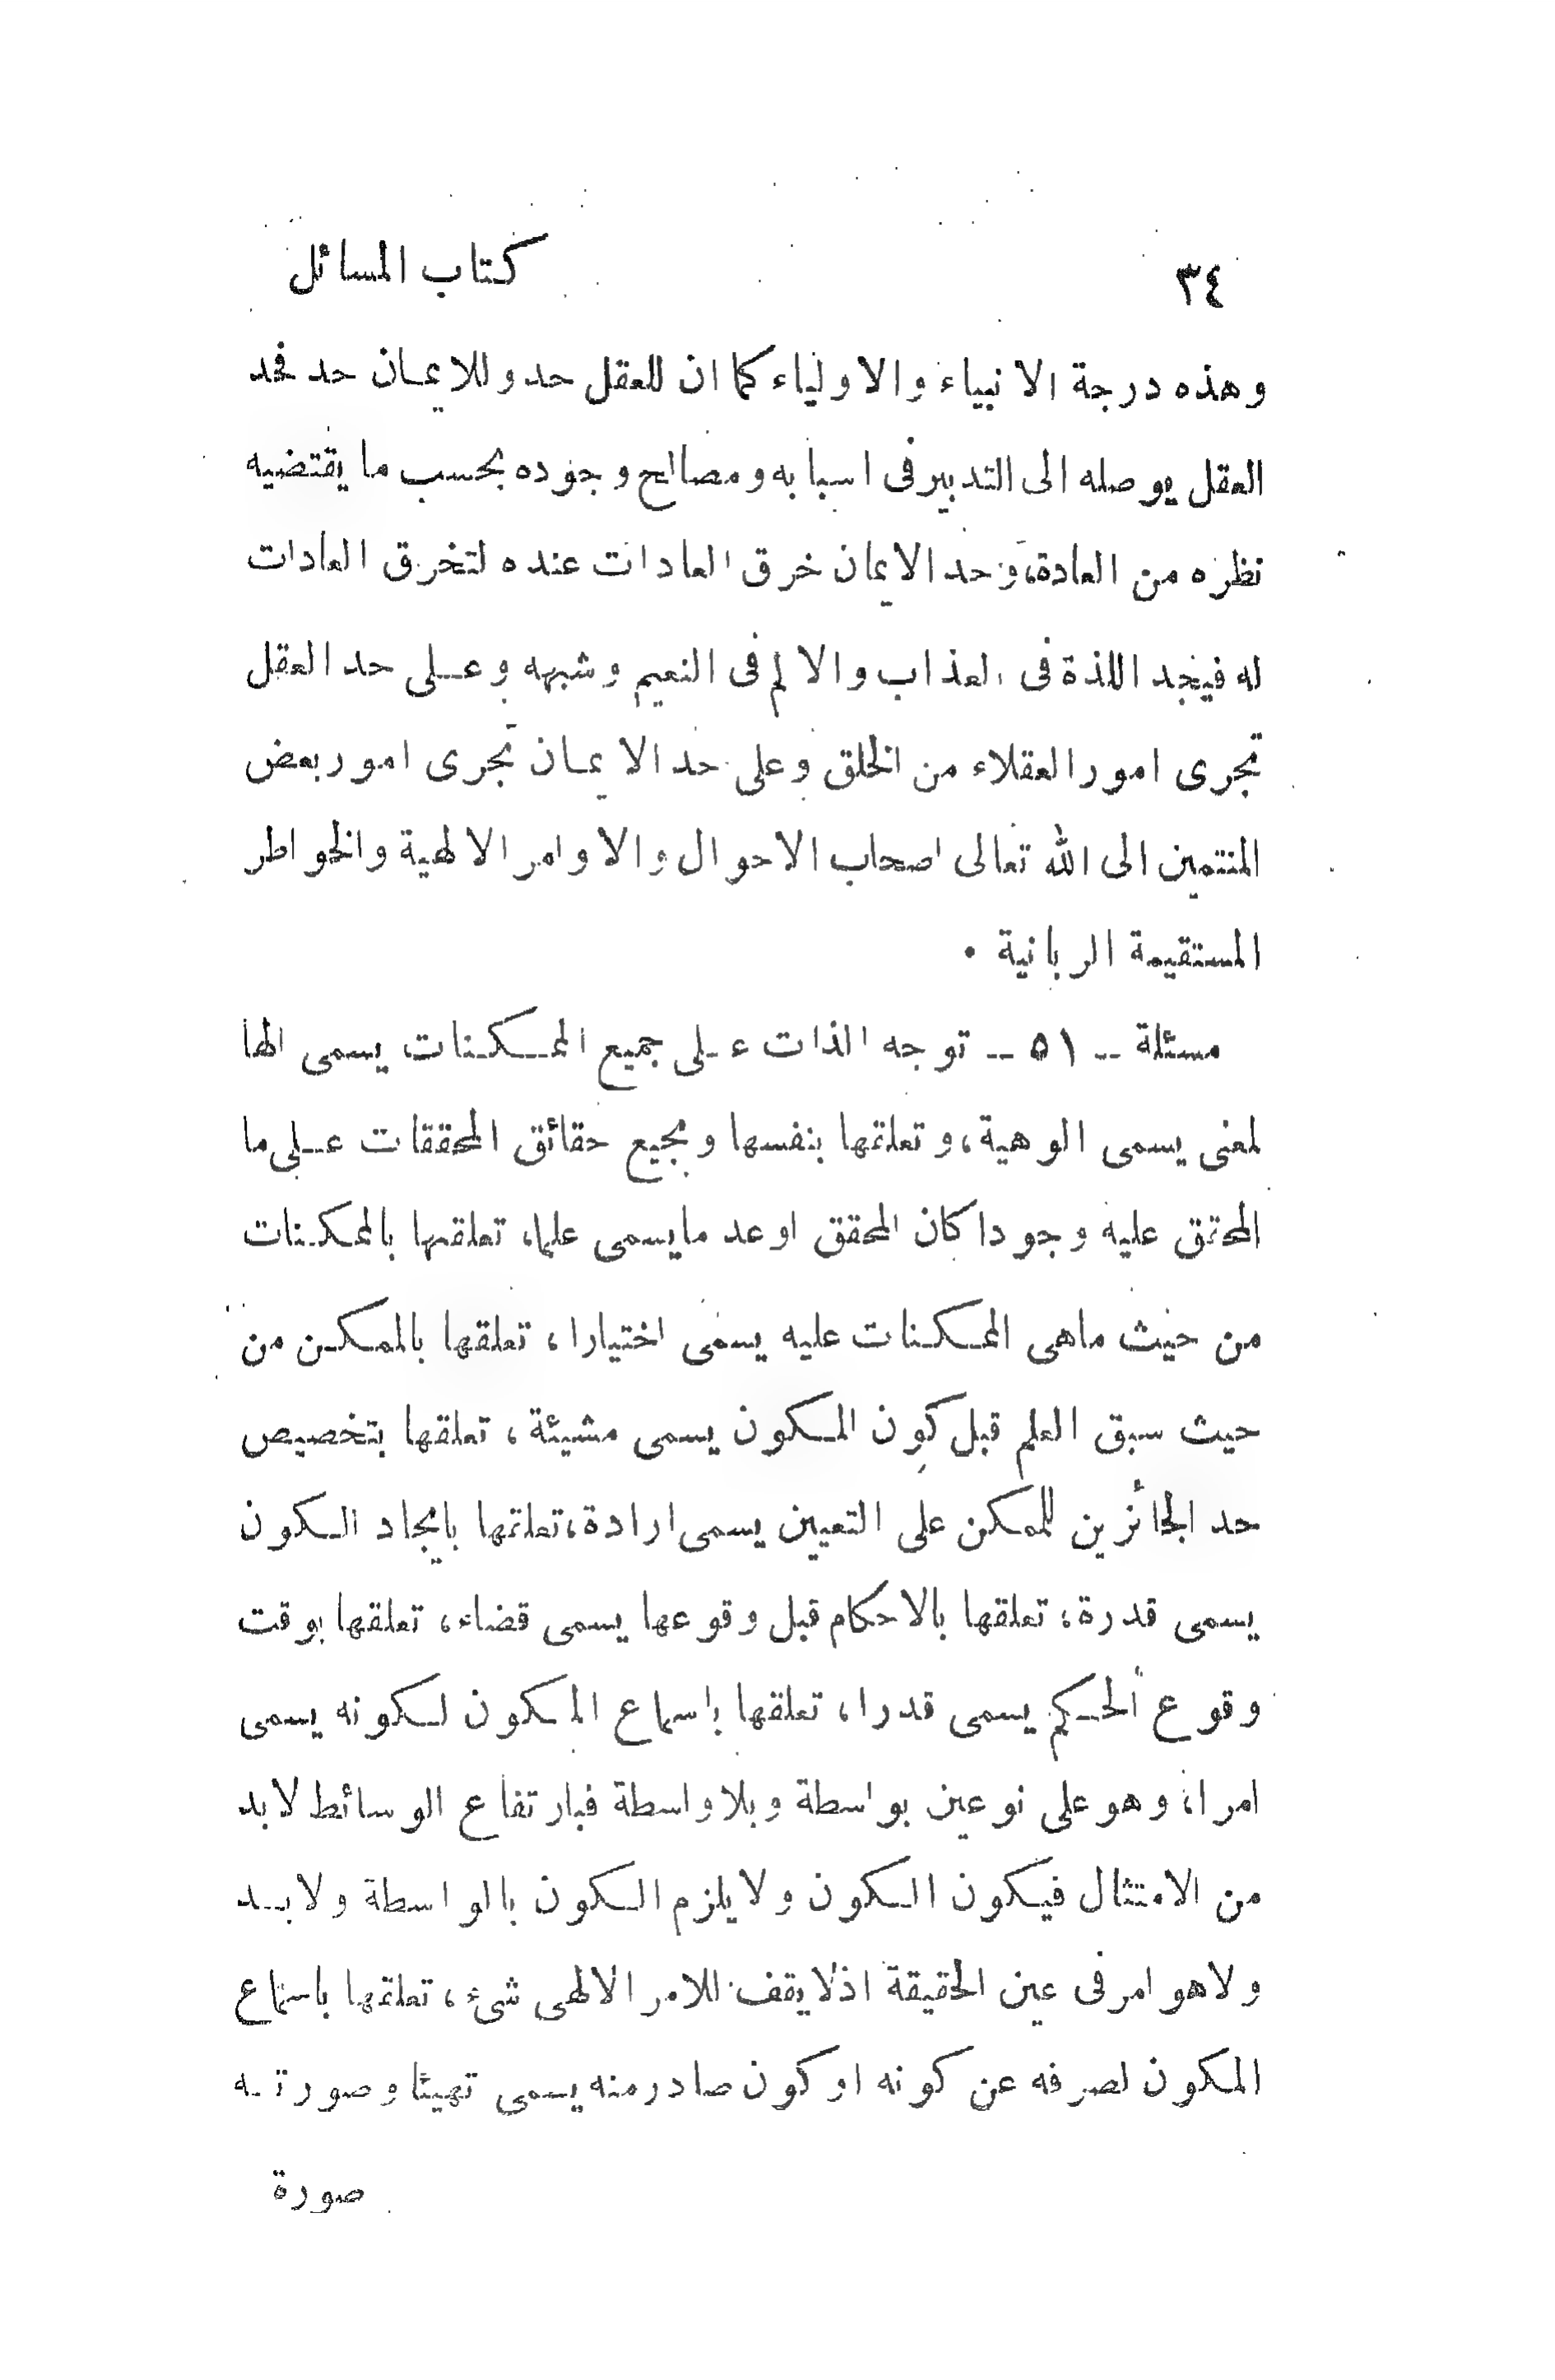 ٣٤
كتاب المسائل
وهذه درجة الانبياء والاولياء كما ان للعقل حد وللايمان حد فحد
العقل يوصله الى التدبير فى اسبابه ومصالح وجوده بحسب ما يقتضيه
نظره من العادة، وحد الايمان خرق العادات عنده لتخرق العادات
له فيجد اللذة فى العذاب والالم فى النعيم وشبهه وعلى حد العقل
تجرى امور العقلاء من الخلق وعلى حد الايمان تجرى امور بعض
المنتمين الى الله تعالى اصحاب الاحوال والاوامر الالهية والخواطر
المستقيمة الربانية •
مسئلة -- ٥١ -- توجه الذات على جميع الممكنات يسمى الها
لمعنى يسمى الوهية، وتعلقها بنفسها وبجميع حقائق المحققات على ما
المحقق عليه وجودا كان المحقق او عدما يسمى علما، تعلقها بالممكنات
من حيث ماهى الممكنات عليه يسمى اختيارا، تعلقها بالممكن من
حيث سبق العلم قبل كون المكون يسمى مشيئة، تعلقها بتخصيص
حد الجائزين للممكن على التعيين يسمى ارادة، تعلقها بايجاد الكون
يسمى قدرة، تعلقها بالاحكام قبل وقوعها يسمى قضاء، تعلقها بوقت
وقوع الحكم يسمى قدرا، تعلقها باسماع المكون لكونه يسمى
امرا، وهو على نوعين بواسطة وبلا واسطة فبارتفاع الوسائط لابد
من الامتثال فيكون الكون ولا يلزم الكون بالواسطة ولابد
ولاهو امر فى عين الحقيقة اذلا يقف للامر الالهى شىء، تعلقها باسماع
المكون لصرفه عن كونه او كون صادر منه يسمى تهيئا وصورته
صورة